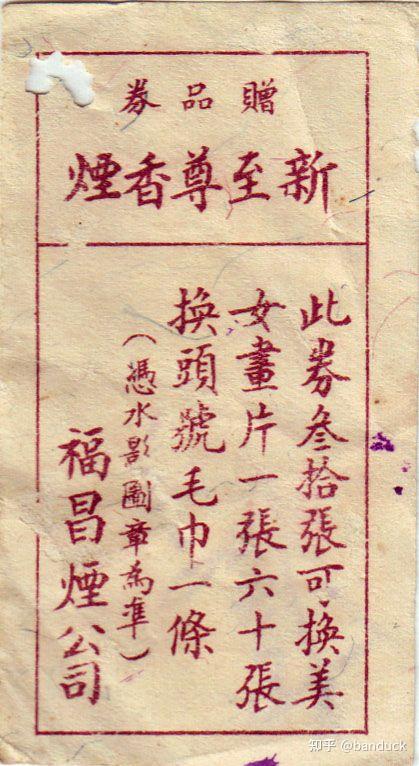 贈品券
新至尊香煙
此券叁拾張可換美
女畫片一張六十張
換頭號毛巾一條
（憑水影圖章為準）
福昌煙公司
知乎 @banduck